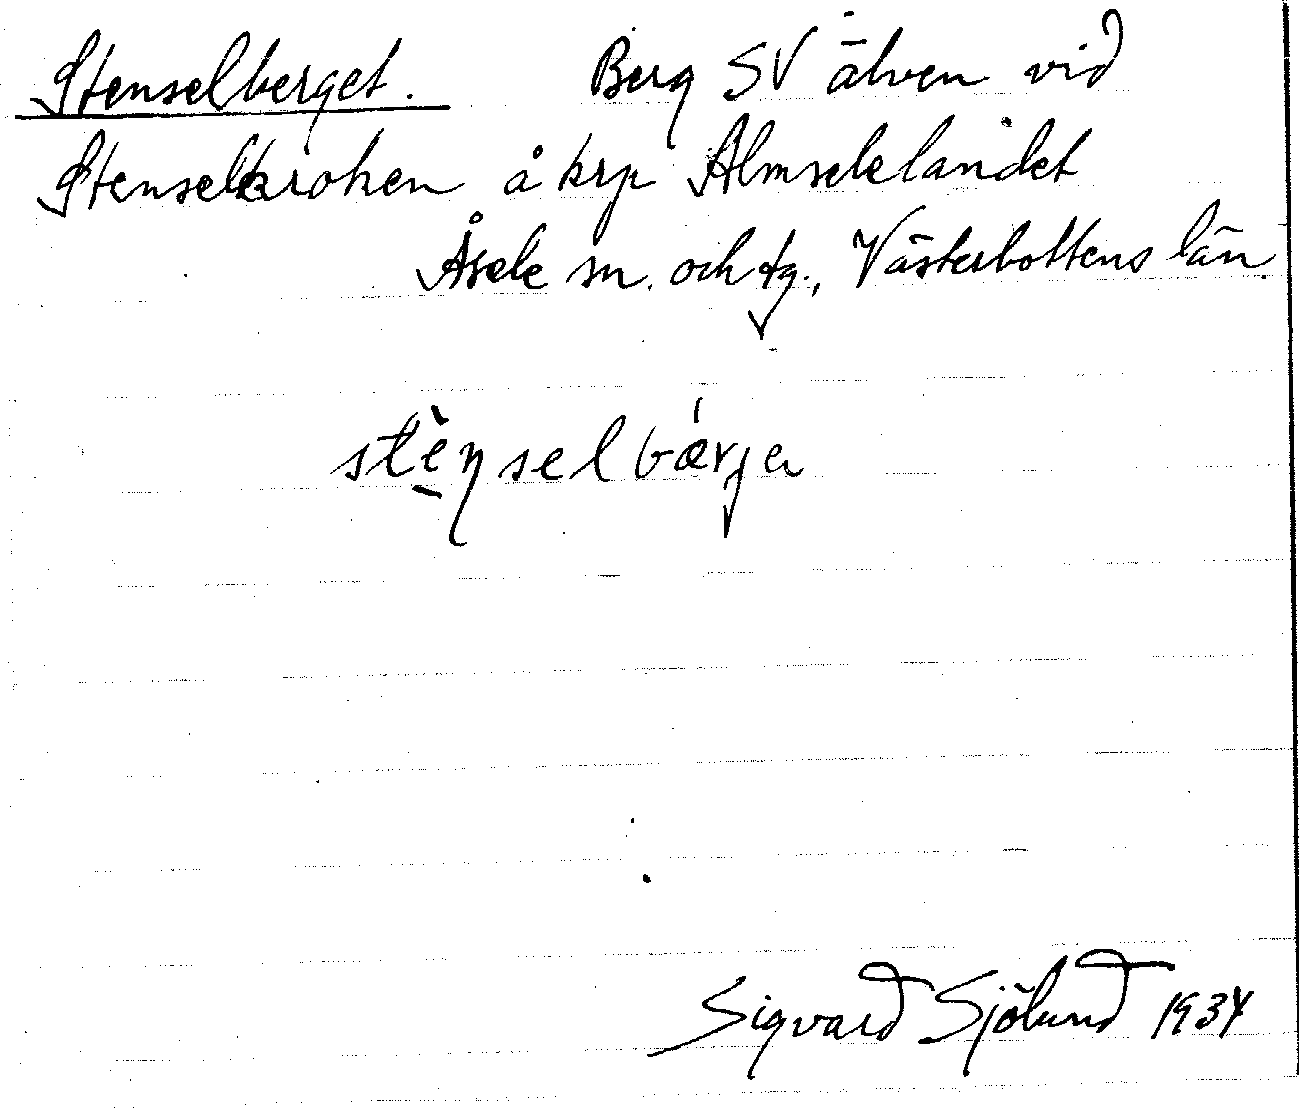 Stenselberget. Berg SV älven vid
Stenselkroken å krp Almselelandet
Åsele sn. och tg., Västerbottens län.
stènselbǽrja
Sigvard Sjölund 1934